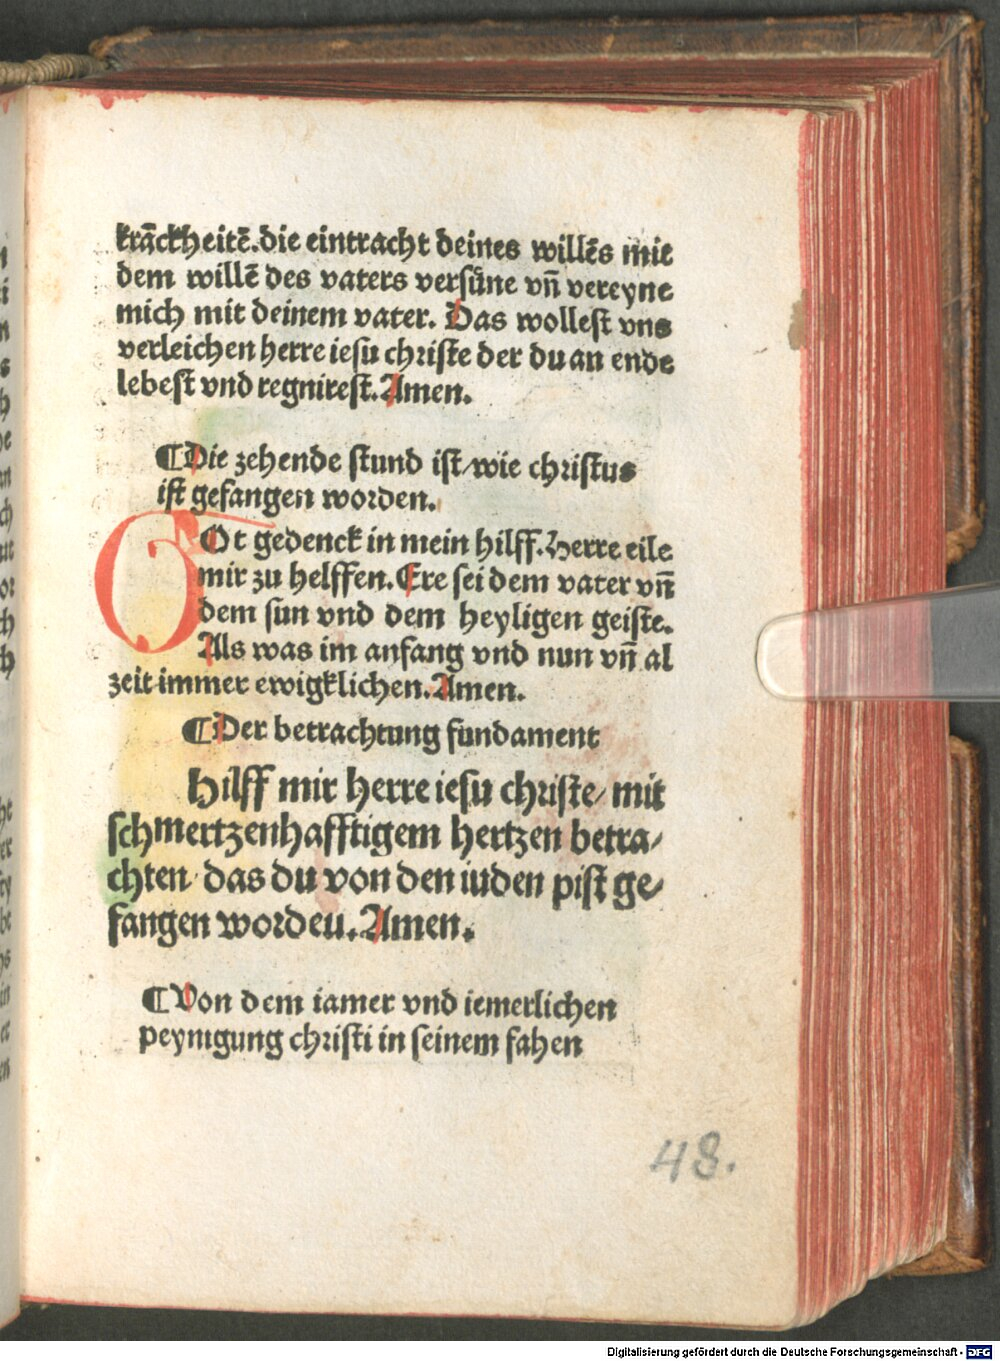 krāckheitē. die eintracht deines willēs mit
dem willē des vaters versüne vn̄ vereyne
mich mit deinem vater. Das wollest vns
verleichen herre iesu christe der du an ende
lebest vnd regnirest. Amen.
¶Die zehende stund ist/wie christus
ist gefangen worden.
GOt gedenck in mein hilff. Herre eile
mir zu helffen. Ere sei dem vater vn̄
dem sun vnd dem heyligen geiste.
Als was im anfang vnd nun vn̄ al
zeit immer ewigklichen. Amen.
¶Der betrachtung fundament
Hilff mir herre iesu christe/ mit
schmertzenhafftigem hertzen betra/
chten das du von den iuden pist ge/
fangen wordeu. Amen.
¶Von dem iamer vnd iemerlichen
peynigung christi in seinem fahen
48.
Digitalisierung gefördert durch die Deutsche Forschungsgemeinschaft - DFG